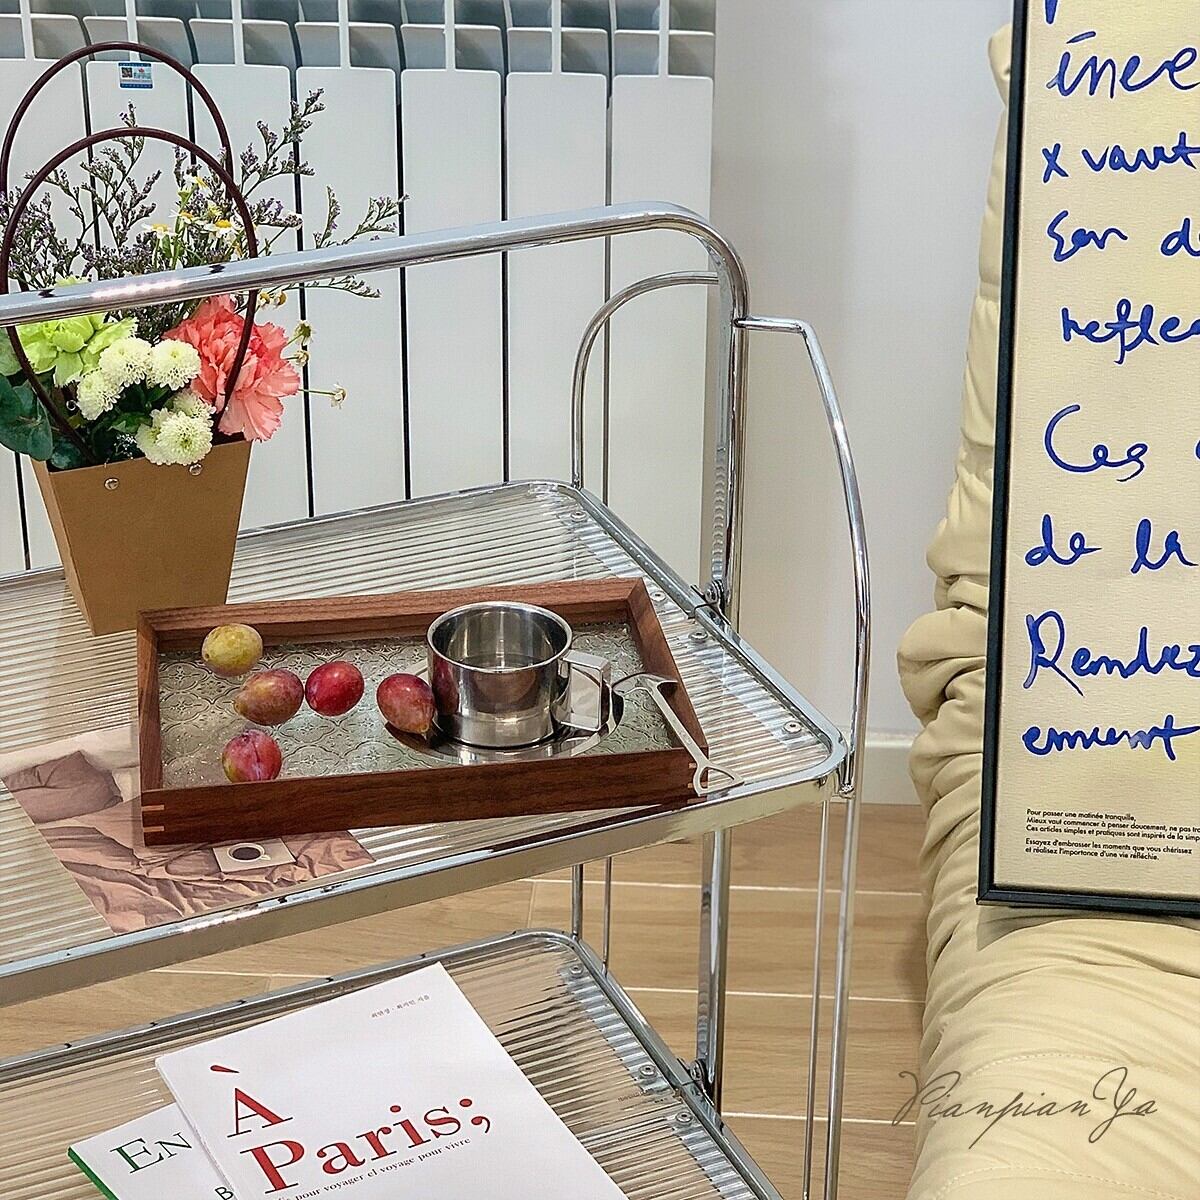 ince
x vaut
Son d
reflec
Ces
de la
Rendez
ement
Pour passer une matinée tranquille,
Mieux vaut commencer à penser doucement, ne pas tro
Ces articles simples et pratiques sont inspirés de la simp
Essayez d'embrasser les moments que vous chérissez
et réalisez l'importance d'une vie réfléchie.
À
Paris;
pour voyager et voyage pour vivre
EN
B
PianpianYa